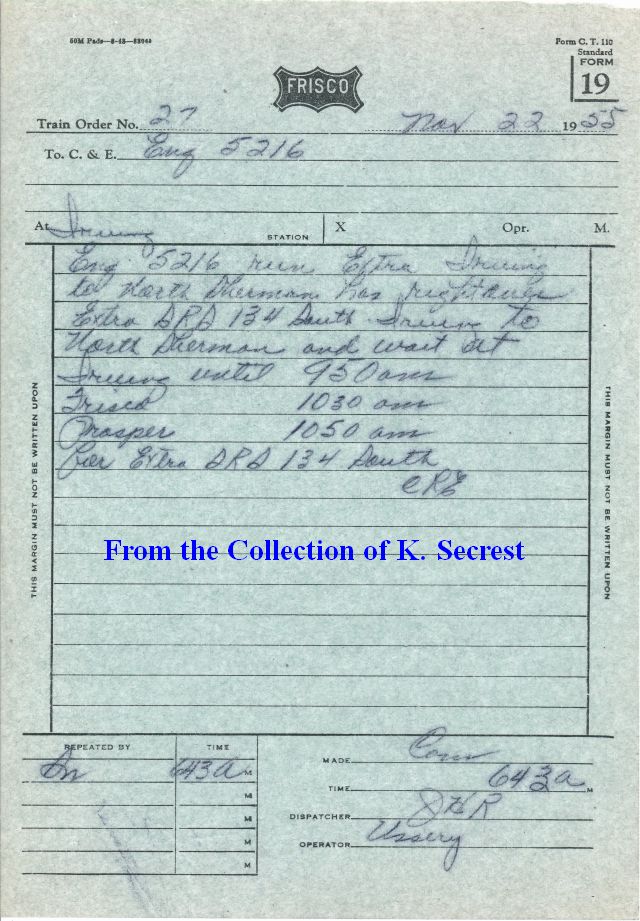 50M Pads—8-48—88046
Form C. T. 110
Standard
FORM
19
FRISCO
Train Order No. 27 Nov 22 1955
To. C. & E. Eng 5216
At Irving STATION X Opr. M.
Eng 5216 run Extra Irving
to North Sherman has right over
Extra DRD 134 South Irving to
North Sherman and wait at
Irving until 950 am
Frisco 1030 am
Prosper 1050 am
for Extra DRD 134 South
CRE
THIS MARGIN MUST NOT BE WRITTEN UPON
THIS MARGIN MUST NOT BE WRITTEN UPON
From the Collection of K. Secrest
REPEATED BY TIME
643A M
M
M
M
M
MADE Com
TIME 643a M
DISPATCHER JHR
OPERATOR Ussery